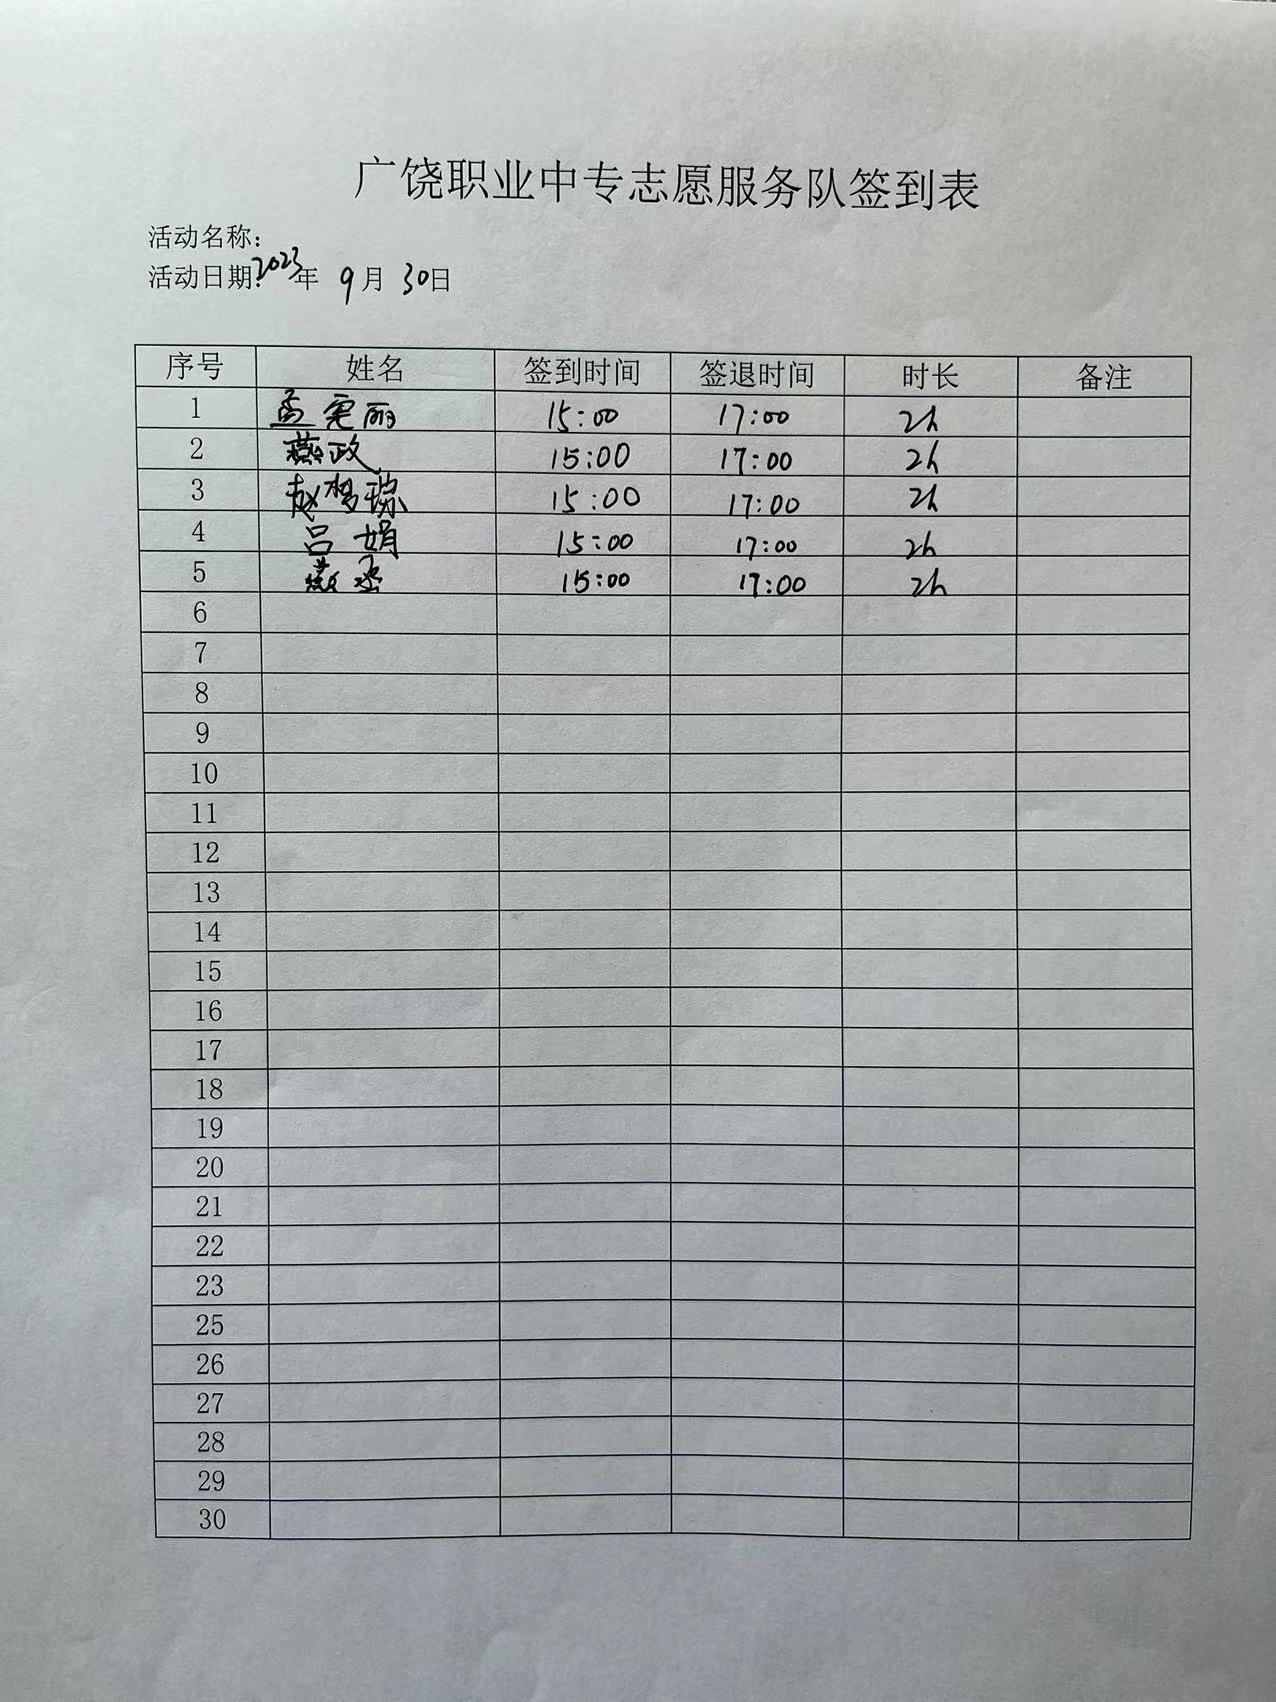 广饶职业中专志愿服务队签到表
活动名称：
活动日期：2023年 9月 30日
序号 姓名 签到时间 签退时间 时长 备注
1 孟 丽 15:00 17:00 2h
2 燕政 15:00 17:00 2h
3 赵梦琼 15:00 17:00 2h
4 吕娟 15:00 17:00 2h
5 燕丞 15:00 17:00 2h
6
7
8
9
10
11
12
13
14
15
16
17
18
19
20
21
22
23
25
26
27
28
29
30